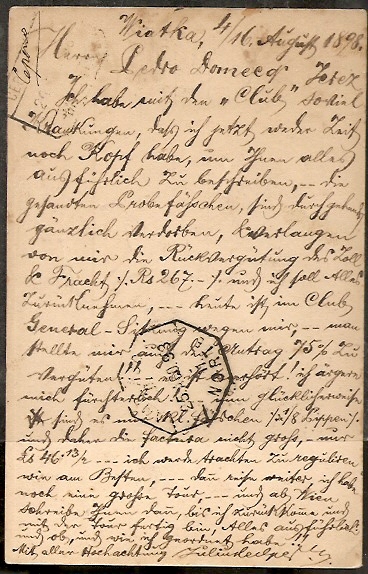 Wiatka, 4/16. August 1898.
Herrn Pedro Domecq Jerez
Ich habe mit den „Club" soviel
Zankungen, dass ich jetzt weder Zeit
noch Kopf habe, um Ihnen alles
ausführlich zu beschreiben, -- die
gesandten Probeflaschen, sind durchgehends
gänzlich verdorben, & verlangen
von mir die Rückvergütung des Zoll
& Fracht ./. Rs 267.- ./. und ich soll Alles
zurücknehmen, -- heute ist im Club
General-Sitzung wegen mir, -- man
stellte mir auch den Antrag 75% zu
vergüten ich ärgere
mich fürchterlich glücklicherweise
sind es nur
und daher die factura nicht gross, - nur
46.13/2 -- ich werde trachten zu reguliren
wie am Besten, -- dann reise weiter, ich habe
noch eine grosse Tour, -- und ab Wien
schreibe Ihnen dann, bis ich zurück komme und
mit der Tour fertig bin, Alles ausführlich
und ob, und wie ich geordnet habe.
Mit aller Hochachtung
NORTE